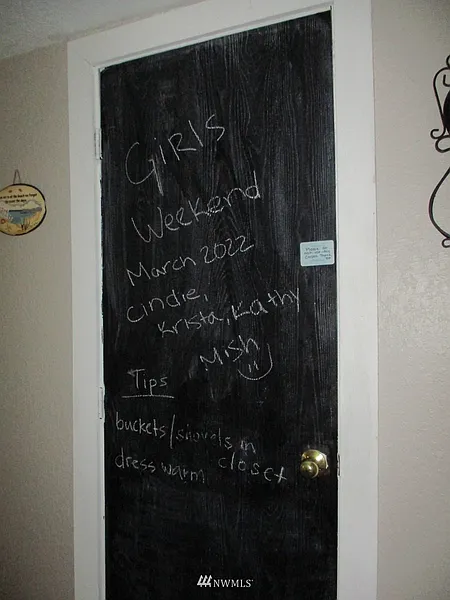 GiRLS
Weekend
March 2022
Cindie,
Krista, Kathy
Mish
Tips
buckets/shovels in
closet
dress warm
NWMLS